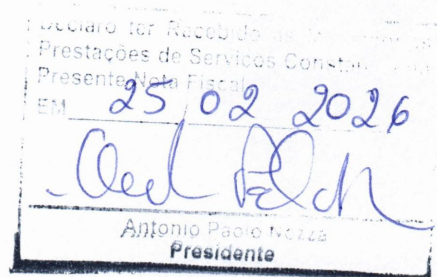 Declaro ter Recebido as
Prestações de Serviços Constan
Presente Nota Fiscal
EM 25 02 2026
Antonio Paolo Nozza
Presidente